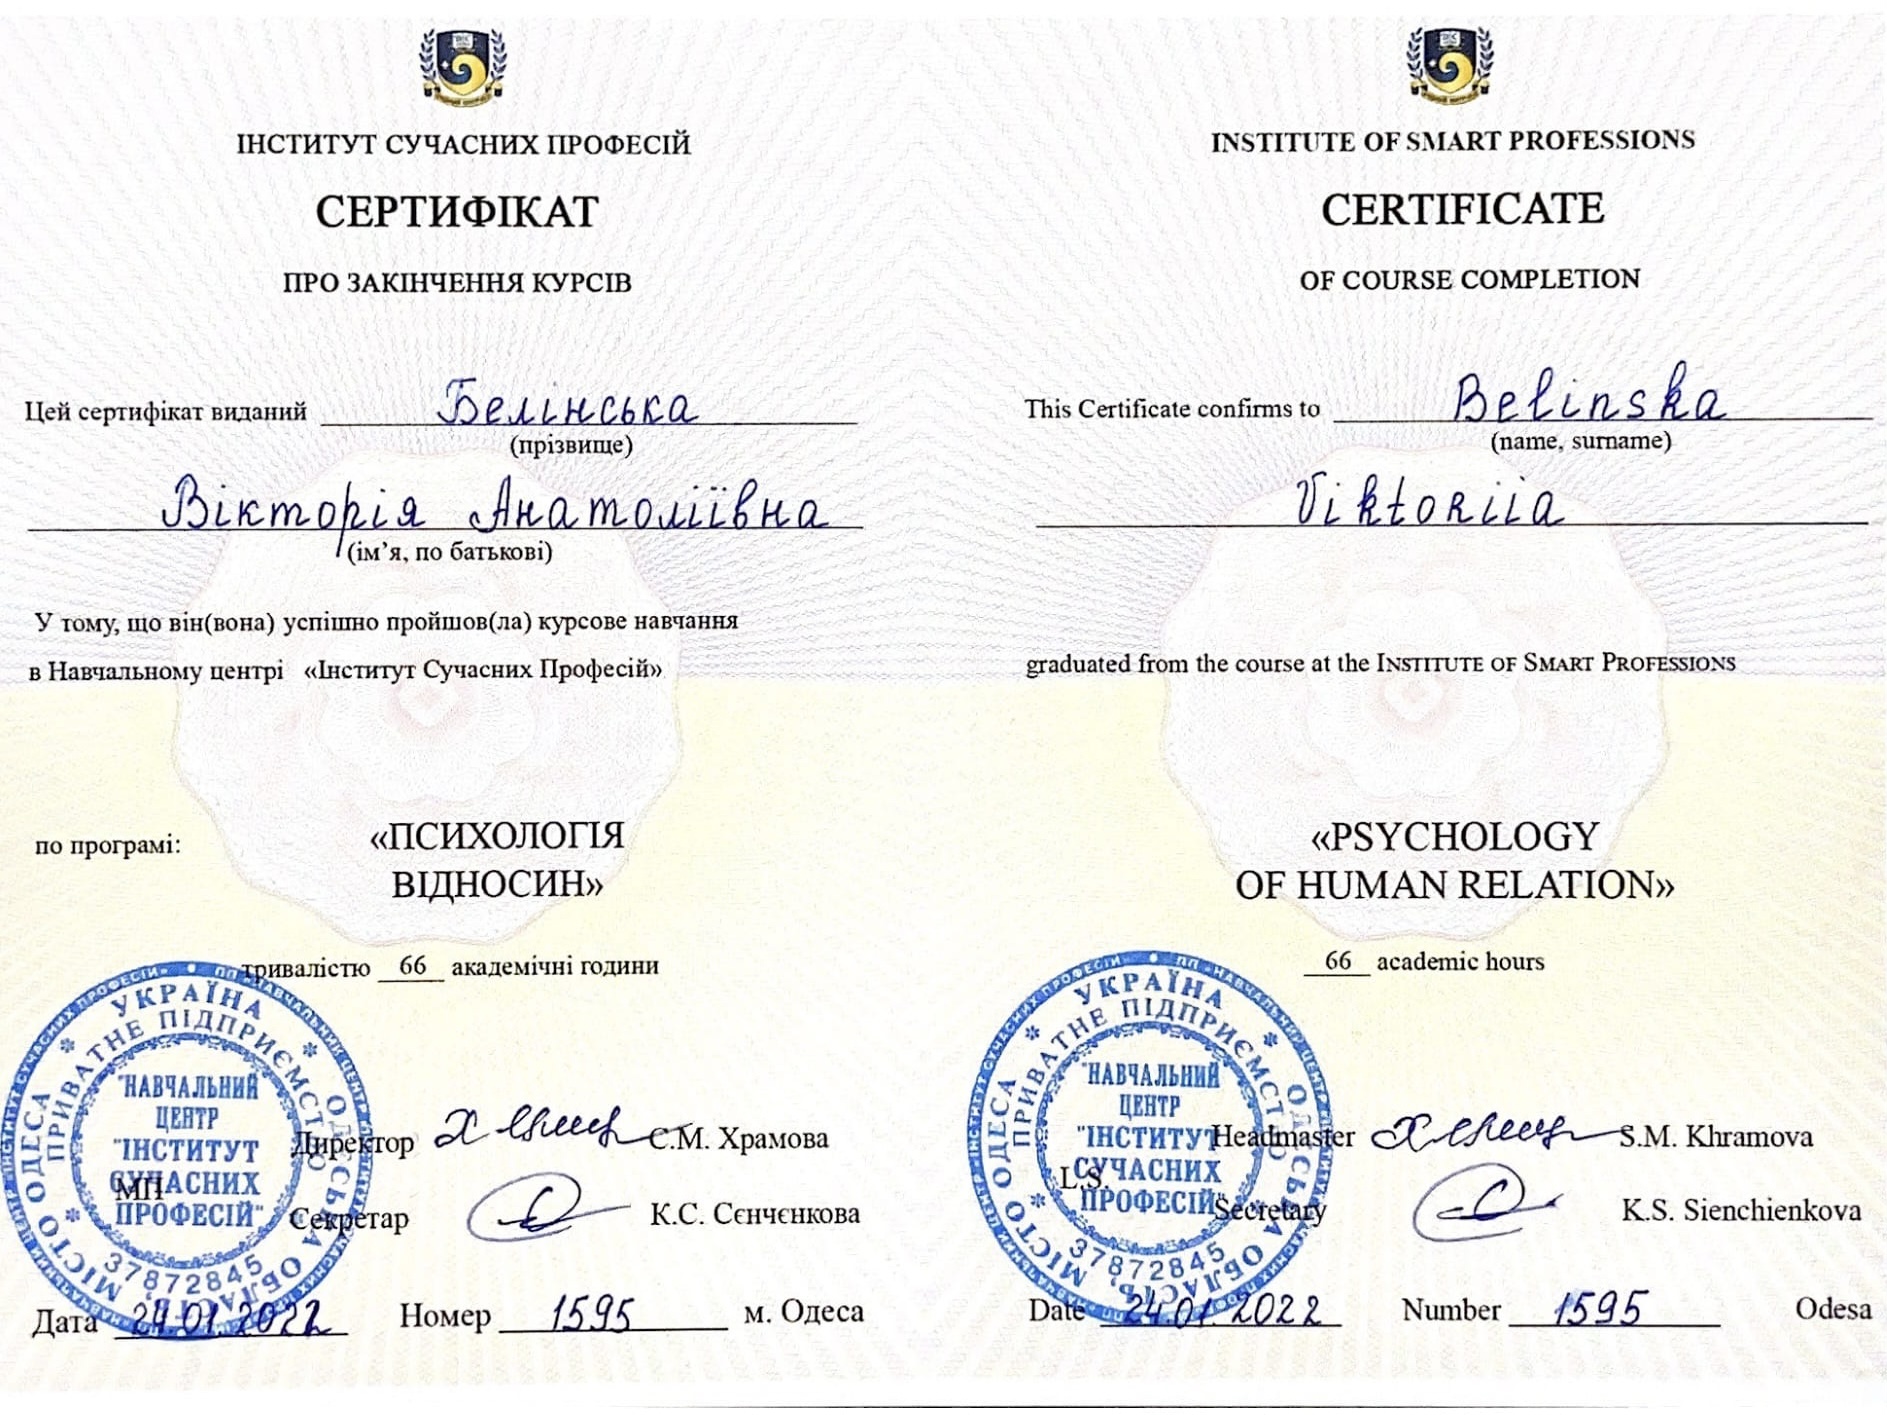 ІНСТИТУТ СУЧАСНИХ ПРОФЕСІЙ
СЕРТИФІКАТ
ПРО ЗАКІНЧЕННЯ КУРСІВ
Цей сертифікат виданий Белінська
(прізвище)
Вікторія Анатоліївна
(ім’я, по батькові)
У тому, що він(вона) успішно пройшов(ла) курсове навчання
в Навчальному центрі «Інститут Сучасних Професій»
по програмі: «ПСИХОЛОГІЯ
ВІДНОСИН»
тривалістю 66 академічні години
УКРАЇНА
ПРИВАТНЕ ПІДПРИЄМСТВО
ОДЕСЬКА ОБЛАСТЬ, МІСТО ОДЕСА
"НАВЧАЛЬНИЙ
ЦЕНТР
"ІНСТИТУТ
СУЧАСНИХ
ПРОФЕСІЙ"
37872845
МП
Директор С.М. Храмова
Секретар К.С. Сєнчєнкова
Дата 24.01.2022 Номер 1595 м. Одеса
INSTITUTE OF SMART PROFESSIONS
CERTIFICATE
OF COURSE COMPLETION
This Certificate confirms to Belinska
(name, surname)
Viktoriia
graduated from the course at the INSTITUTE OF SMART PROFESSIONS
«PSYCHOLOGY
OF HUMAN RELATION»
66 academic hours
УКРАЇНА
ПРИВАТНЕ ПІДПРИЄМСТВО
ОДЕСЬКА ОБЛАСТЬ, МІСТО ОДЕСА
"НАВЧАЛЬНИЙ
ЦЕНТР
"ІНСТИТУТ
СУЧАСНИХ
ПРОФЕСІЙ"
37872845
L.S.
Headmaster S.M. Khramova
Secretary K.S. Sienchienkova
Date 24.01.2022 Number 1595 Odesa